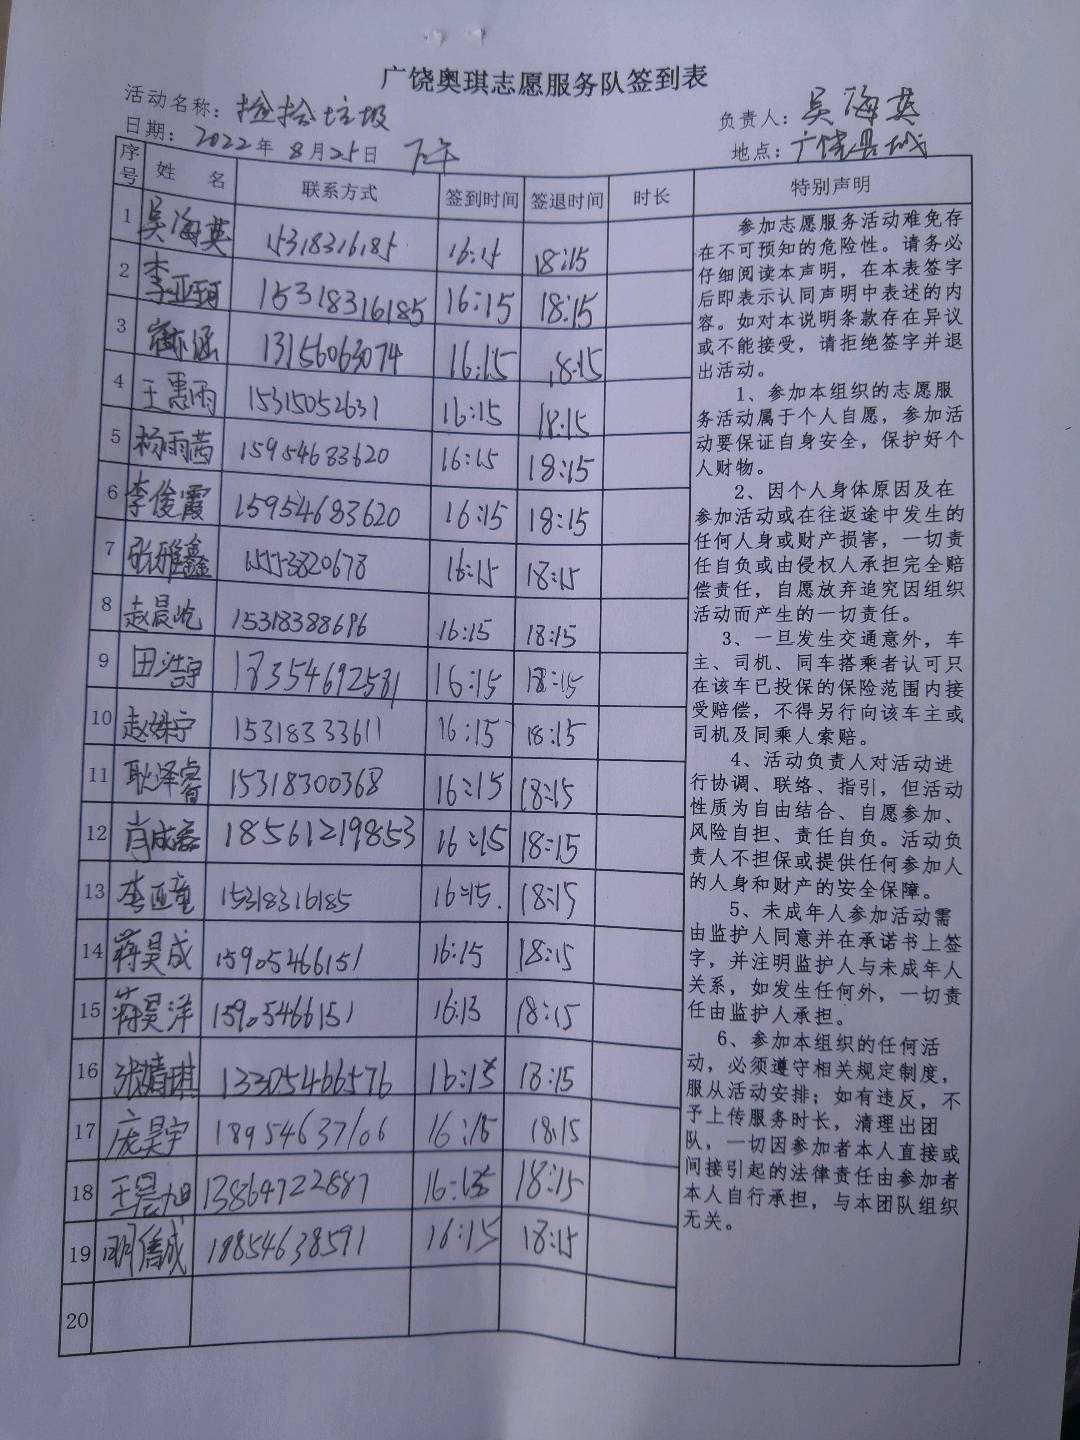 广饶奥琪志愿服务队签到表
活动名称：捡拾垃圾 负责人：吴海英
日期：2022年8月25日 下午 地点：广饶县城
序号 姓名 联系方式 签到时间 签退时间 时长 特别声明
1 吴海英 15318316185 16:15 18:15
2 李亚轩 15318316185 16:15 18:15
3 崔亦涵 13156063074 16:15 18:15
4 王惠雨 15315052631 16:15 18:15
5 杨雨茜 15954683620 16:15 18:15
6 李俊霞 15954683620 16:15 18:15
7 张雅鑫 15553820678 16:15 18:15
8 赵晨屹 15318388696 16:15 18:15
9 田浩宇 18354692581 16:15 18:15
10 赵婌宁 15318333611 16:15 18:15
11 耿泽睿 15318300368 16:15 18:15
12 肖成 18561219853 16:15 18:15
13 李亚童 15318316185 16:15 18:15
14 蒋昊成 15905466151 16:15 18:15
15 蒋昊洋 15905466151 16:15 18:15
16 张婧琪 13305466576 16:15 18:15
17 庞昊宇 18954637106 16:15 18:15
18 王晨旭 13864722887 16:15 18:15
19 明儁成 18854638591 16:15 18:15
20
参加志愿服务活动难免存
在不可预知的危险性。请务必
仔细阅读本声明，在本表签字
后即表示认同声明中表述的内
容。如对本说明条款存在异议
或不能接受，请拒绝签字并退
出活动。
1、参加本组织的志愿服
务活动属于个人自愿，参加活
动要保证自身安全，保护好个
人财物。
2、因个人身体原因及在
参加活动或在往返途中发生的
任何人身或财产损害，一切责
任自负或由侵权人承担完全赔
偿责任，自愿放弃追究因组织
活动而产生的一切责任。
3、一旦发生交通意外，车
主、司机、同车搭乘者认可只
在该车已投保的保险范围内接
受赔偿，不得另行向该车主或
司机及同乘人索赔。
4、活动负责人对活动进
行协调、联络、指引，但活动
性质为自由结合、自愿参加、
风险自担、责任自负。活动负
责人不担保或提供任何参加人
的人身和财产的安全保障。
5、未成年人参加活动需
由监护人同意并在承诺书上签
字，并注明监护人与未成年人
关系，如发生任何外，一切责
任由监护人承担。
6、参加本组织的任何活
动，必须遵守相关规定制度，
服从活动安排；如有违反，不
予上传服务时长，清理出团
队，一切因参加者本人直接或
间接引起的法律责任由参加者
本人自行承担，与本团队组织
无关。